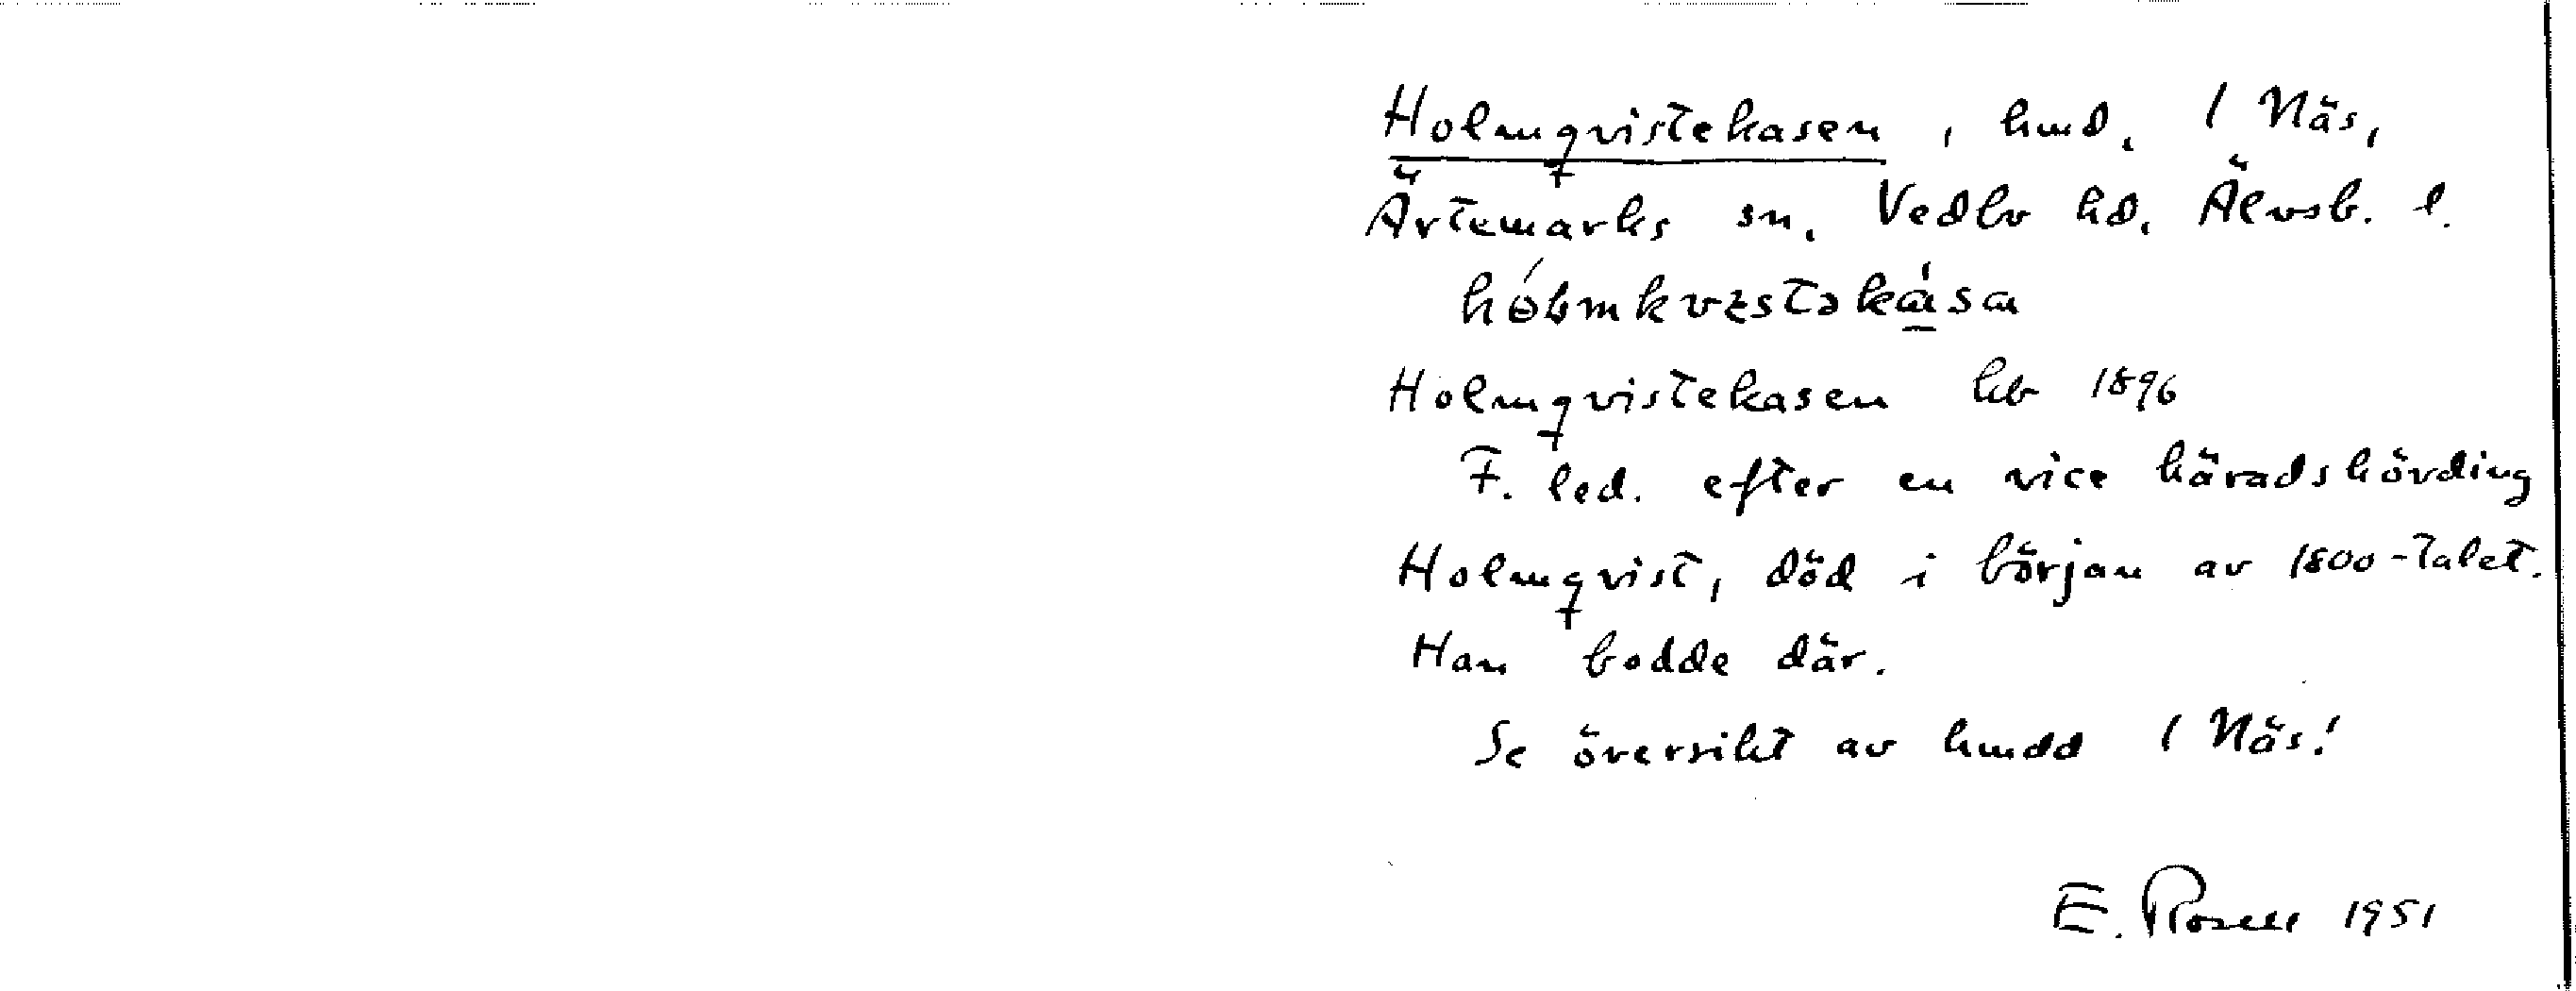 Holmqvistekasen, hmd. 1 Näs,
Ärtemarks sn. Vedbo hd. Älvsb. l.
Holmqvistekasen hb 1896
F. led. efter en vice häradshövding
Holmqvist, död i början av 1800-talet.
Han bodde där.
Se översikt av hmdd 1 Näs!
E. Rosell 1951